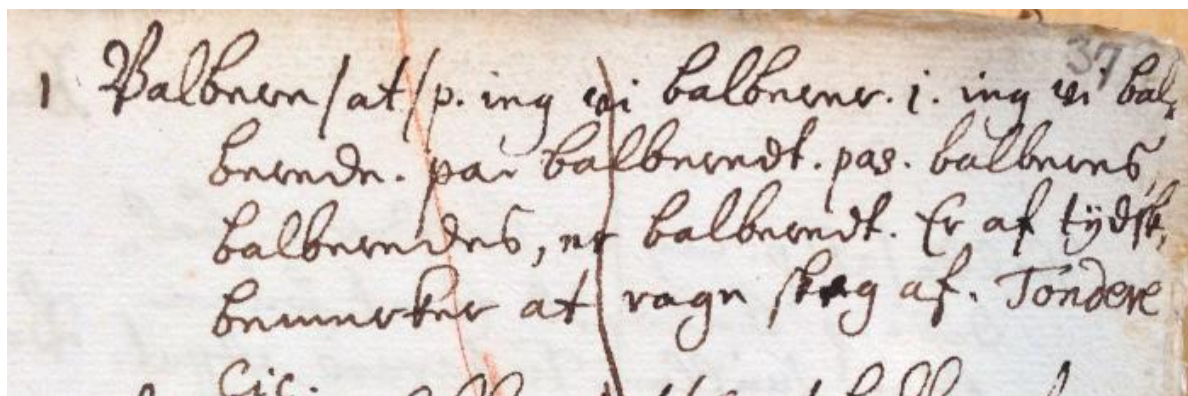 37
1 Balbere / at / p. ieg vi balberer. i. ieg vi bal⸗
berede. par balberedt. pas. balberes,
balberedes, er balberedt. Er af tydsk,
bemerker at rage skeg af. Tondere